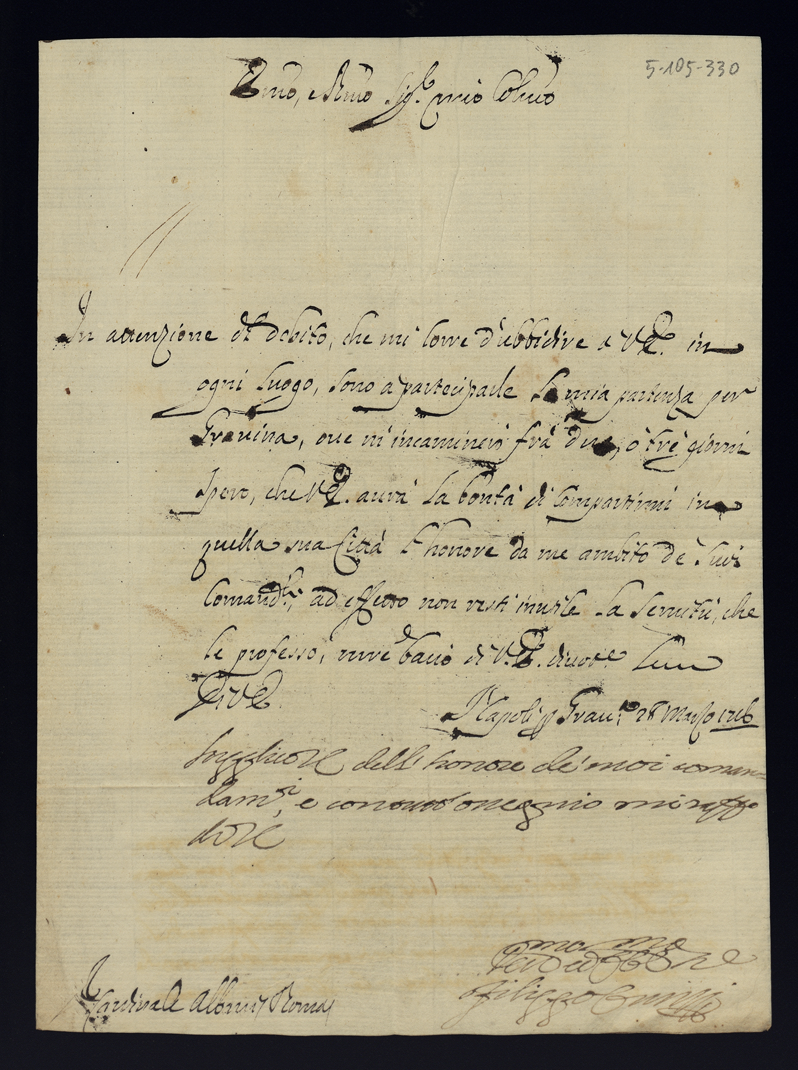 5-105-330
Emo, e Rmo Sigr. mio Colmo
In attenzione del debito, che mi corre d'ubbidire a V.E. in
ogni luogo, sono a parteciparle la mia partenza per
Gravina, ove m'incaminerò frà due, ò trè giorni
Spero, che V.E. avrà la bontà di compartirmi in
quella sua Città l'honore da me ambito de suoi
Comandi, ad effetto non resti inutile la servitù, che
le professo, mentre bacio di V.E. divote.
Di V.E.
Napoli p Grav.na 28 Marzo 1716
dell'honore de suoi coman=
dam.ti, e con ossequio mi
Filippo
Cardinale Albani Roma